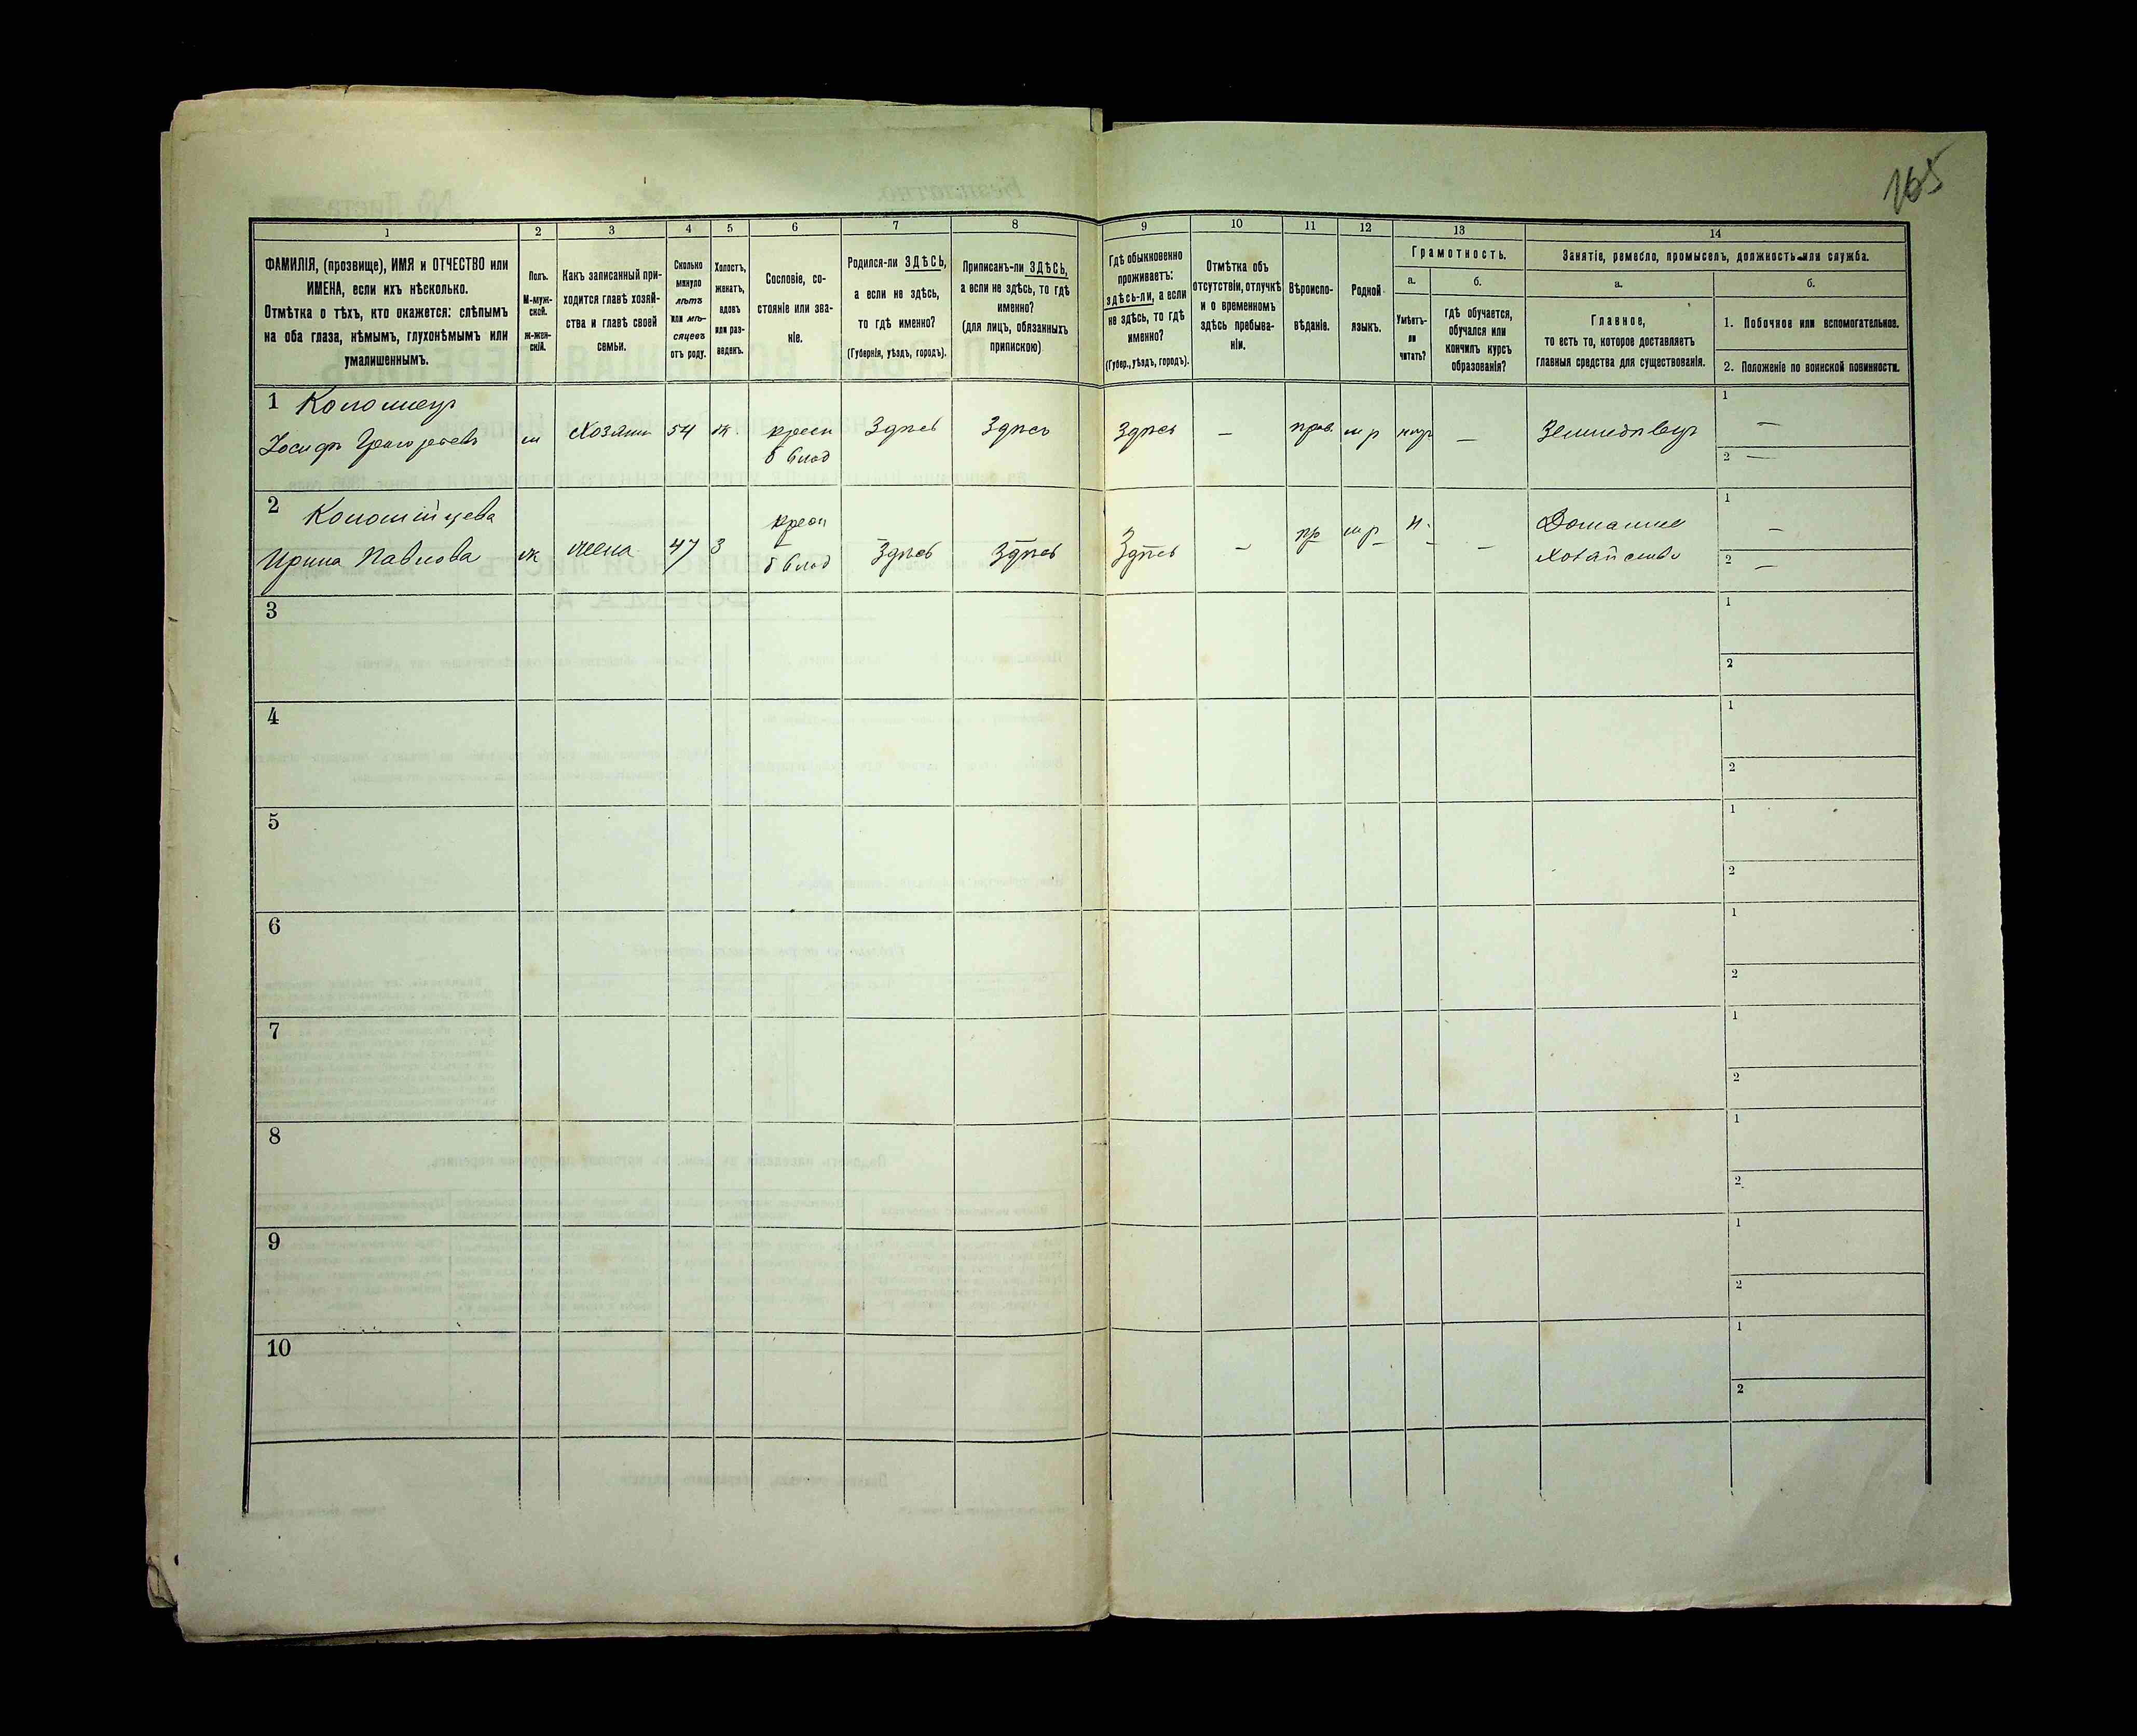 165
1
2
3
4
5
6
7
8
9
10
11
12
13
14
ФАМИЛІЯ, (прозвище), ИМЯ и ОТЧЕСТВО или
ИМЕНА, если ихъ нѣсколько.
Отмѣтка о тѣхъ, кто окажется: слѣпымъ
на оба глаза, нѣмымъ, глухонѣмымъ или
умалишеннымъ.
Полъ.
М-муж-
ской.
ж-жен-
скій.
Какъ записанный при-
ходится главѣ хозяй-
ства и главѣ своей
семьи.
Сколько
минуло
лѣтъ
или мѣ-
сяцевъ
отъ роду.
Холостъ,
женатъ,
вдовъ
или раз-
веденъ.
Сословіе, со-
стояніе или зва-
ніе.
Родился-ли ЗДѢСЬ,
а если не здѣсь,
то гдѣ именно?
(Губернія, уѣздъ, городъ).
Приписанъ-ли ЗДѢСЬ,
а если не здѣсь, то гдѣ
именно?
(для лицъ, обязанныхъ
припискою)
Гдѣ обыкновенно
проживаетъ:
здѣсь-ли, а если
не здѣсь, то гдѣ
именно?
(Губер., уѣздъ, городъ).
Отмѣтка объ
отсутствіи, отлучкѣ
и о временномъ
здѣсь пребыва-
ніи.
Вѣроиспо-
вѣданіе.
Родной
языкъ.
Грамотность.
а.
Умѣетъ-
ли
читать?
б.
гдѣ обучается,
обучался или
кончилъ курсъ
образованія?
Занятіе, ремесло, промыселъ, должность или служба.
а.
Главное,
то есть то, которое доставляетъ
главныя средства для существованія.
б.
1. Побочное или вспомогательное.
2. Положеніе по воинской повинности.
1 Коломіецъ
Іосифъ Григорьевъ
м
Хозяинъ
54
ж.
крест
б влад
Здѣсь
Здѣсь
Здѣсь
—
прав.
м р
—
Земледѣлецъ
1 —
2 —
2 Коломійцева
Ирина Павлова
ж
жена
47
З
крест
б влад
Здѣсь
Здѣсь
Здѣсь
—
пр
м р
н.
—
Домашнее
Хозяйство
1 —
2 —
3
1
2
4
1
2
5
1
2
6
1
2
7
1
2
8
1
2
9
1
2
10
1
2